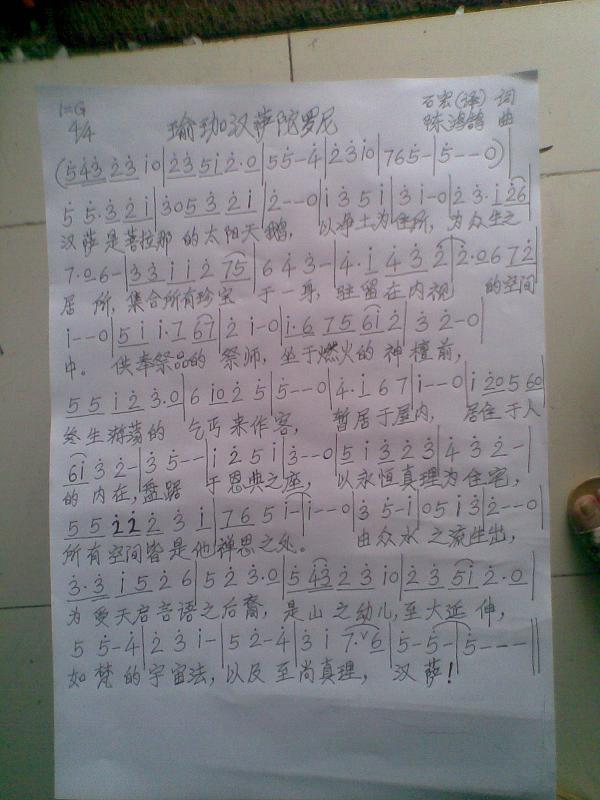 1=G
4/4
瑜珈汉萨陀罗尼
石宏(译) 词
陈鸿鸽 曲
(5̇4̇3̇ 2̇3̇ i0|2̇3̇ 5̇i 2̇·0|5̇5̇-4̇|2̇3̇i0|765-|5--0)|
5 5·3̇2̇i|3̇05̇3̇ 2̇i|2̇--0|i 3̇ 5 i|3̇ i-0|2̇ 3̇·i 2̇6|
汉萨是菩拉那 的太阳天鹅, 以净土为住所, 为众生之
7·06-|3̇3̇ii2̇ 75|6 4̇ 3̇-|4̇·i 4̇3̇2̇|2̇·0672̇|
居 所, 集合所有珍宝 于一身, 驻留在内视 的空间
i--0|5i i·7 67|2̇ i-0|i·6 75 6i 2̇|3̇ 2̇-0|
中。 供奉祭品的 祭师, 坐于燃火的 神檀前,
5 5 i2̇ 3̇·0|6 i02̇ 5|5--0|4̇·i 6 7|i--0|i 2̇05 60|
终生游荡的 乞丐来作客, 暂居于屋内, 居住于人
6i 3̇ 2̇-|3̇ 5--|i 2̇ 5 i|3̇--0|5 i 3̇ 2̇ 3̇|4̇ 3̇ 2̇-|
的 内在, 盘踞 于恩典之座, 以永恒真理为住宅,
5 5 2̇2̇2̇ 3̇ i|76 5 i-|i--0|3̇ 5-i|05i3̇|2̇--0
所有空间皆是他禅思之处。 由众水之流生出,
3̇·3̇ i5 2̇ 6|5 2̇ 3̇·0|5̇ 4̇3̇ 2̇3̇ i0|2̇3̇ 5̇i 2̇·0|
为 爱天启言语之后裔, 是山之幼儿, 至大延伸,
5̇ 5̇-4̇|2̇ 3̇ i-|5̇ 2̇-4̇|3̇ i 7·ᵛ6|5̇-5̇-|5̇---‖
如 梵 的宇宙法, 以及至尚真理, 汉 萨!